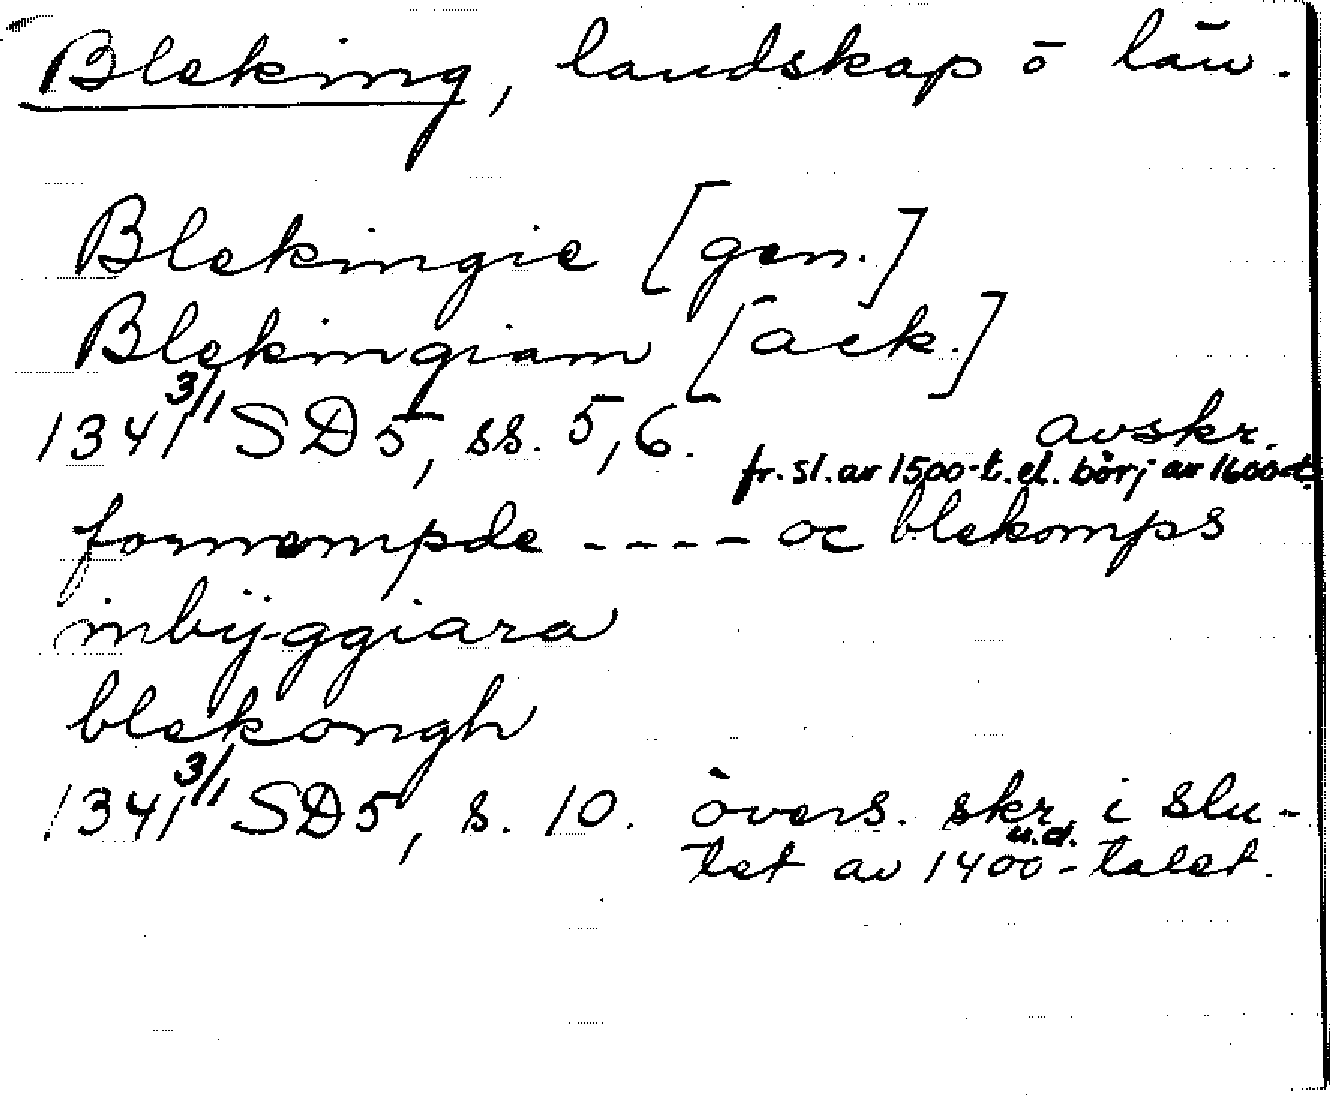 Bleking, landskap o län.
Blekingie [gen.]
Blekingiam [ack.]
1341 3/11 SD5, ss. 5,6. avskr.
fr. sl. av 1500-t. el. börj av 1600-t.
fornempde ---- oc blekomps
inbÿggiara
blekongh
1341 3/11 SD5, s. 10. övers. skr. i slu-
u.d.
tet av 1400-talet.